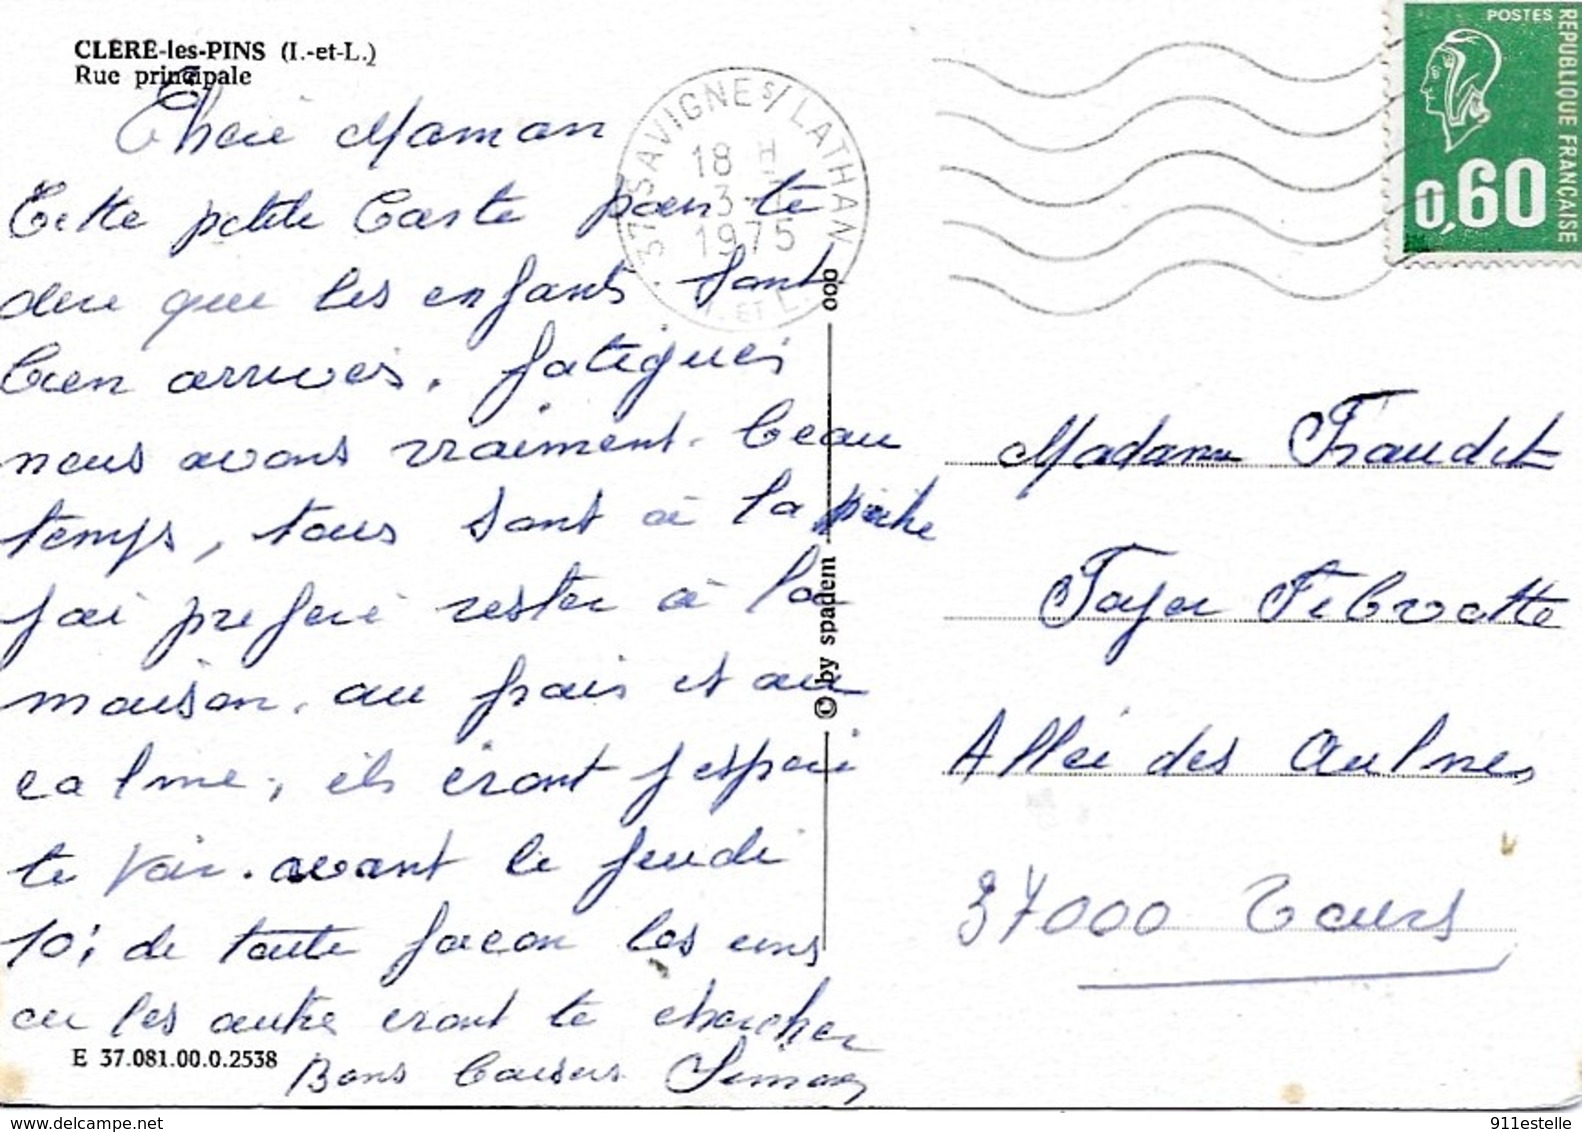 CLÉRÉ-les-PINS (I.-et-L.)
Rue principale
Chère Maman
Cette petite Carte pour te
dire que les enfants sont
bien arrivés. fatigués
nous avons vraiment beau
temps, tous sont à la pêche
j'ai préféré rester à la
maison. au frais et au
calme, ils iront j'espère
te voir. avant le jeudi
10; de toute façon les uns
ou les autre iront te chercher
Bons baisers Simone
E 37.081.00.0.2538
© by spadem
ooo
37 SAVIGNE s/ LATHAN
18 H
3-
1975
I. ET L.
POSTES
RÉPUBLIQUE FRANÇAISE
0,60
Madame Fraudet
Foyer Febvotte
Allée des Aulnes
37000 Tours
911estelle